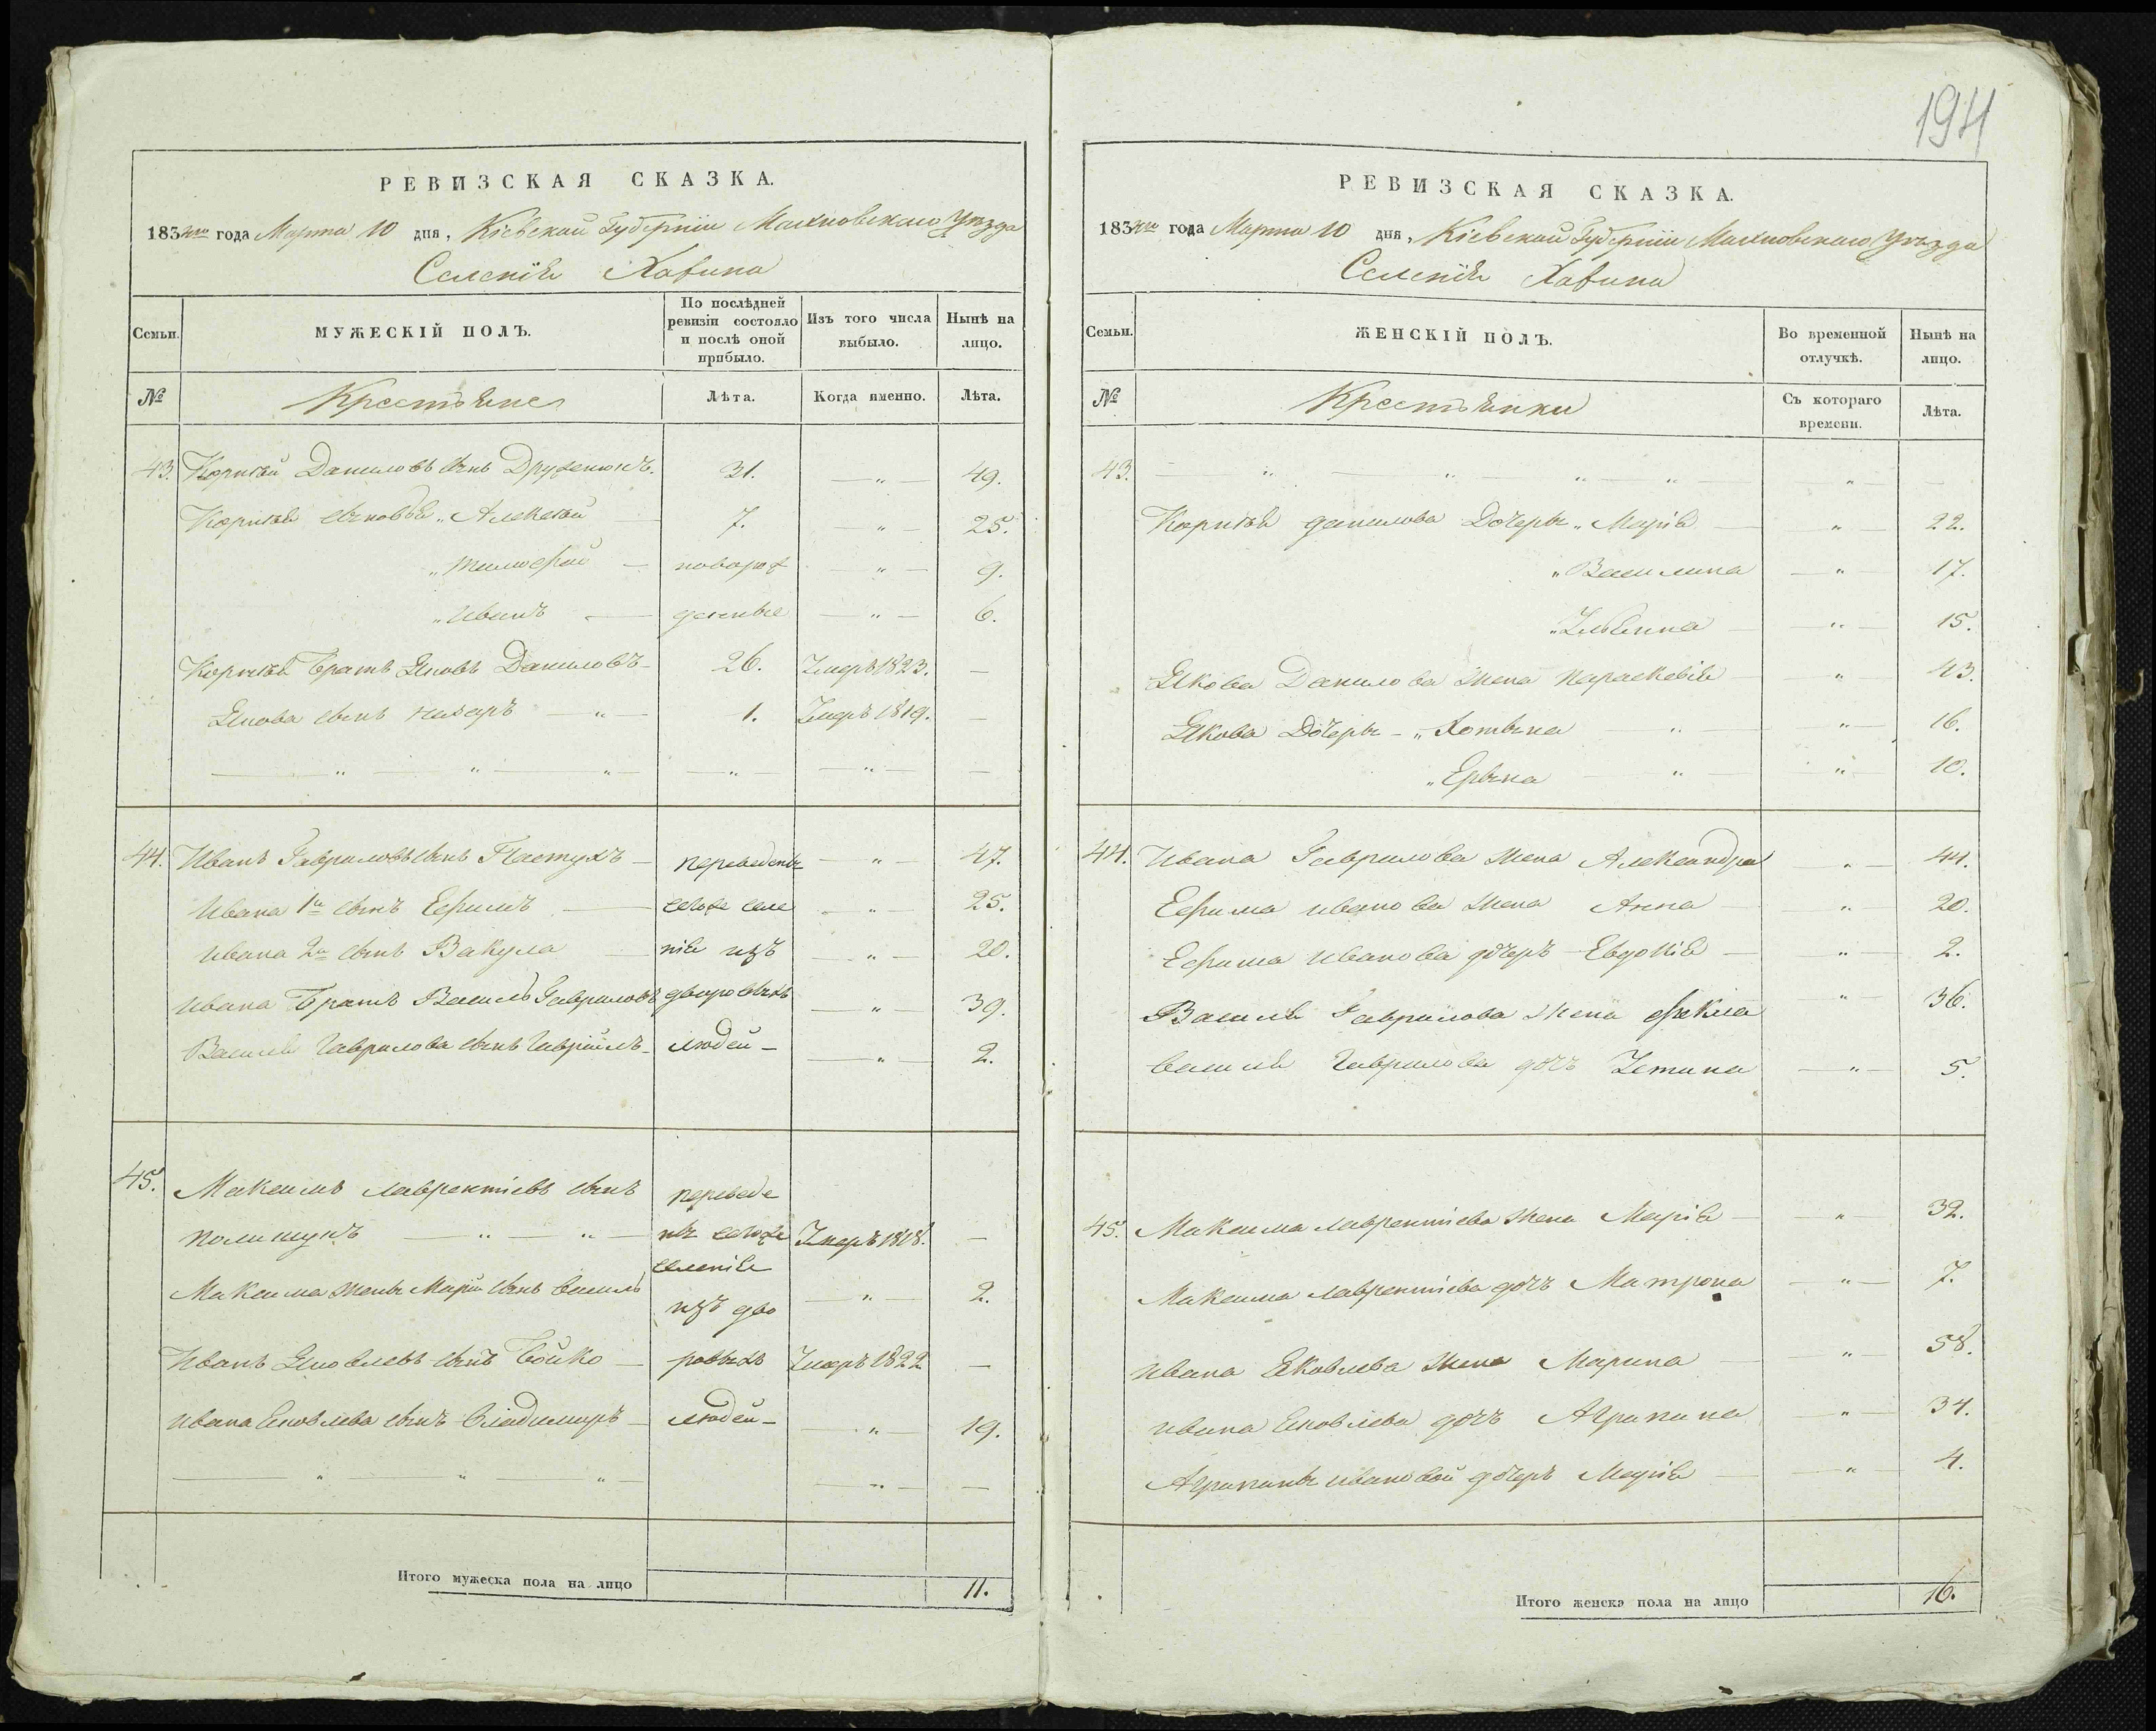 194
РЕВИЗСКАЯ СКАЗКА.
1834го года Марта 10 дня, Кіевской Губерніи Махновскаго Уѣзда
Селенія
Семьи. МУЖЕСКІЙ ПОЛЪ. По послѣдней ревизіи состояло и послѣ оной прибыло. Изъ того числа выбыло. Нынѣ на лицо.
№ Крестьяне Лѣта. Когда именно. Лѣта.
43. Корнѣй Даниловъ сынъ 31. — „ — 49.
Корнѣя сыновья „ Алексѣй 7. — „ — 25.
„ Тимофѣй — новорож — „ — 9.
„ Иванъ — денные — „ — 6.
Корнѣя Братъ Яковъ Даниловъ — 26. Умеръ 1823. —
Якова сынъ Назаръ — „ — 1. Умеръ 1819. —
— „ — „ — „ — — „ — — „ — —
44. Иванъ Гавриловъ сынъ Пастухъ — переведены — „ — 47.
Ивана 1й сынъ Ефимъ — сего же селе — „ — 25.
Ивана 2й сынъ Вакула — нія изъ — „ — 20.
Ивана Братъ Василь Гавриловъ дворовыхъ — „ — 39.
Василя Гаврилова сынъ Гаврїилъ — людей — — „ — 2.
45. Максимъ Лаврентіевъ сынъ переведе
Полищукъ — „ — „ — нъ сего же Умеръ 1818. —
селенія
Максима жены Марїи сынъ Василь — „ — 2.
изъ дво
Иванъ Яковлевъ сынъ Бойко — ровыхъ Умеръ 1822 —
Ивана Яковлева сынъ Владимиръ — людей — — „ — 19.
— „ — „ — „ — — „ — —
Итого мужеска пола на лицо 11.
РЕВИЗСКАЯ СКАЗКА.
1834го года Марта 10 дня, Кіевской Губерніи Махновскаго Уѣзда
Селенія
Семьи. ЖЕНСКІЙ ПОЛЪ. Во временной отлучкѣ. Нынѣ на лицо.
№ Крестьянки Съ котораго времени. Лѣта.
43. — „ — „ — „ — „ — „ —
Корнѣя Данилова Дочеры „ Марія — „ — 22.
„ Василина — „ — 17.
„ Ульяна — „ — 15.
Якова Данилова жена Параскевія — „ — 43.
Якова Дочеры — „ Хотына — „ — „ — 16.
„ Ерына — „ — „ — 10.
44. Ивана Гаврилова жена Александра — „ — 44.
Ефима Иванова жена Анна — „ — 20.
Ефима Иванова дочерь Евдокія — „ — 2.
Василя Гаврилова жена Фекла — „ — 36.
Василя Гаврилова дочъ Устина — „ — 5.
45. Максима Лаврентіева жена Марія — „ — 32.
Максима Лаврентіева дочъ Матрона — „ — 7.
Ивана Яковлева жена Марина — „ — 58.
Ивана Яковлева дочъ Агрипина — „ — 34.
Агрипины Ивановой дочерь Марія — „ — 4.
Итого женска пола на лицо 16.